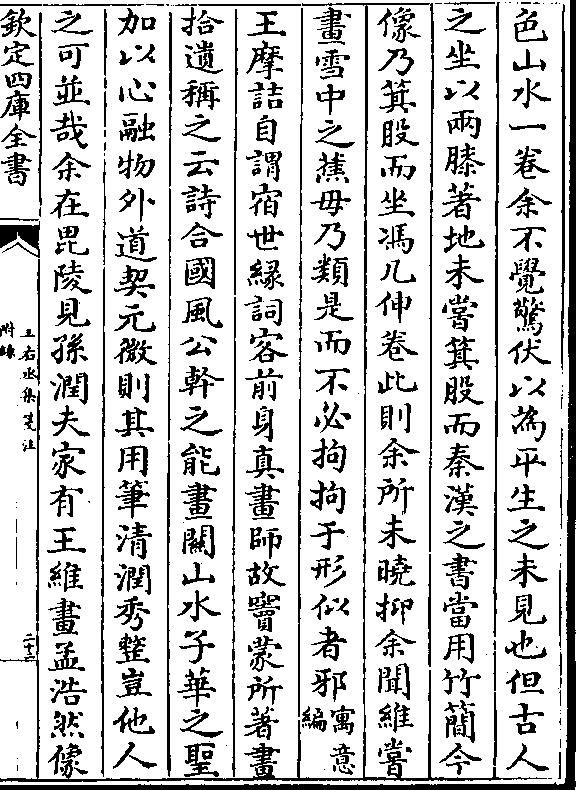 色山水一卷余不覺驚伏以為平生之未見也但古人
之坐以兩膝著地未嘗箕股而秦漢之書當用竹簡今
像乃箕股而坐馮几伸卷此則余所未曉抑余聞維嘗
畫雪中之蕉毋乃類是而不必拘拘于形似者邪寓意編
王摩詰自謂宿世緣詞客前身真畫師故竇蒙所著畫
拾遺稱之云詩合國風公幹之能畫關山水子華之聖
加以心融物外道契元微則其用筆清潤秀整豈他人
之可並哉余在毘陵見孫潤夫家有王維畫孟浩然像
欽定四庫全書
王右丞集箋注
附錄
二十二